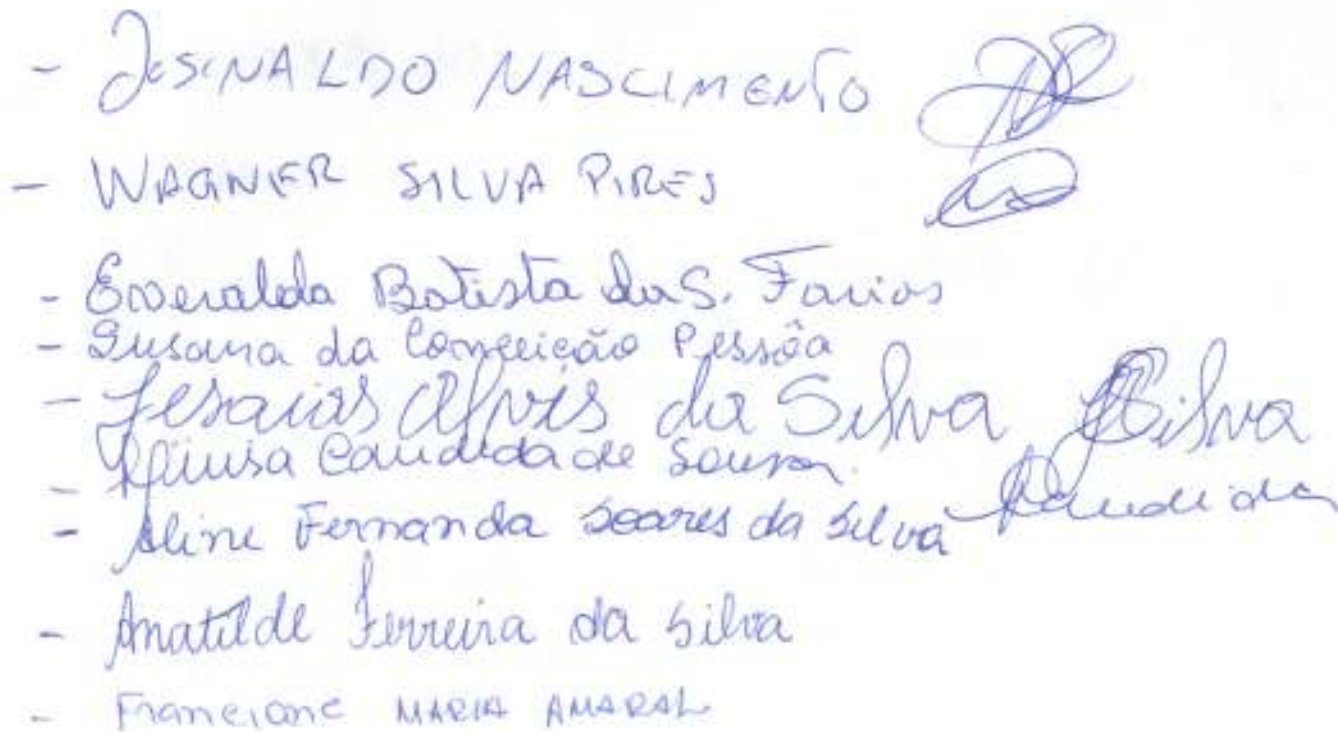 - JOSINALDO NASCIMENTO
- WAGNER SILVA PIRES
- Esveralda Batista da S. Farias
- Susana da Conceição Pessôa
- Jesaias Alves da Silva JASilva
- Candida de Sousa
- Aline Fernanda Soares da Silva Candida
- Anatilde Ferreira da Silva
- Francione MARIA AMARAL